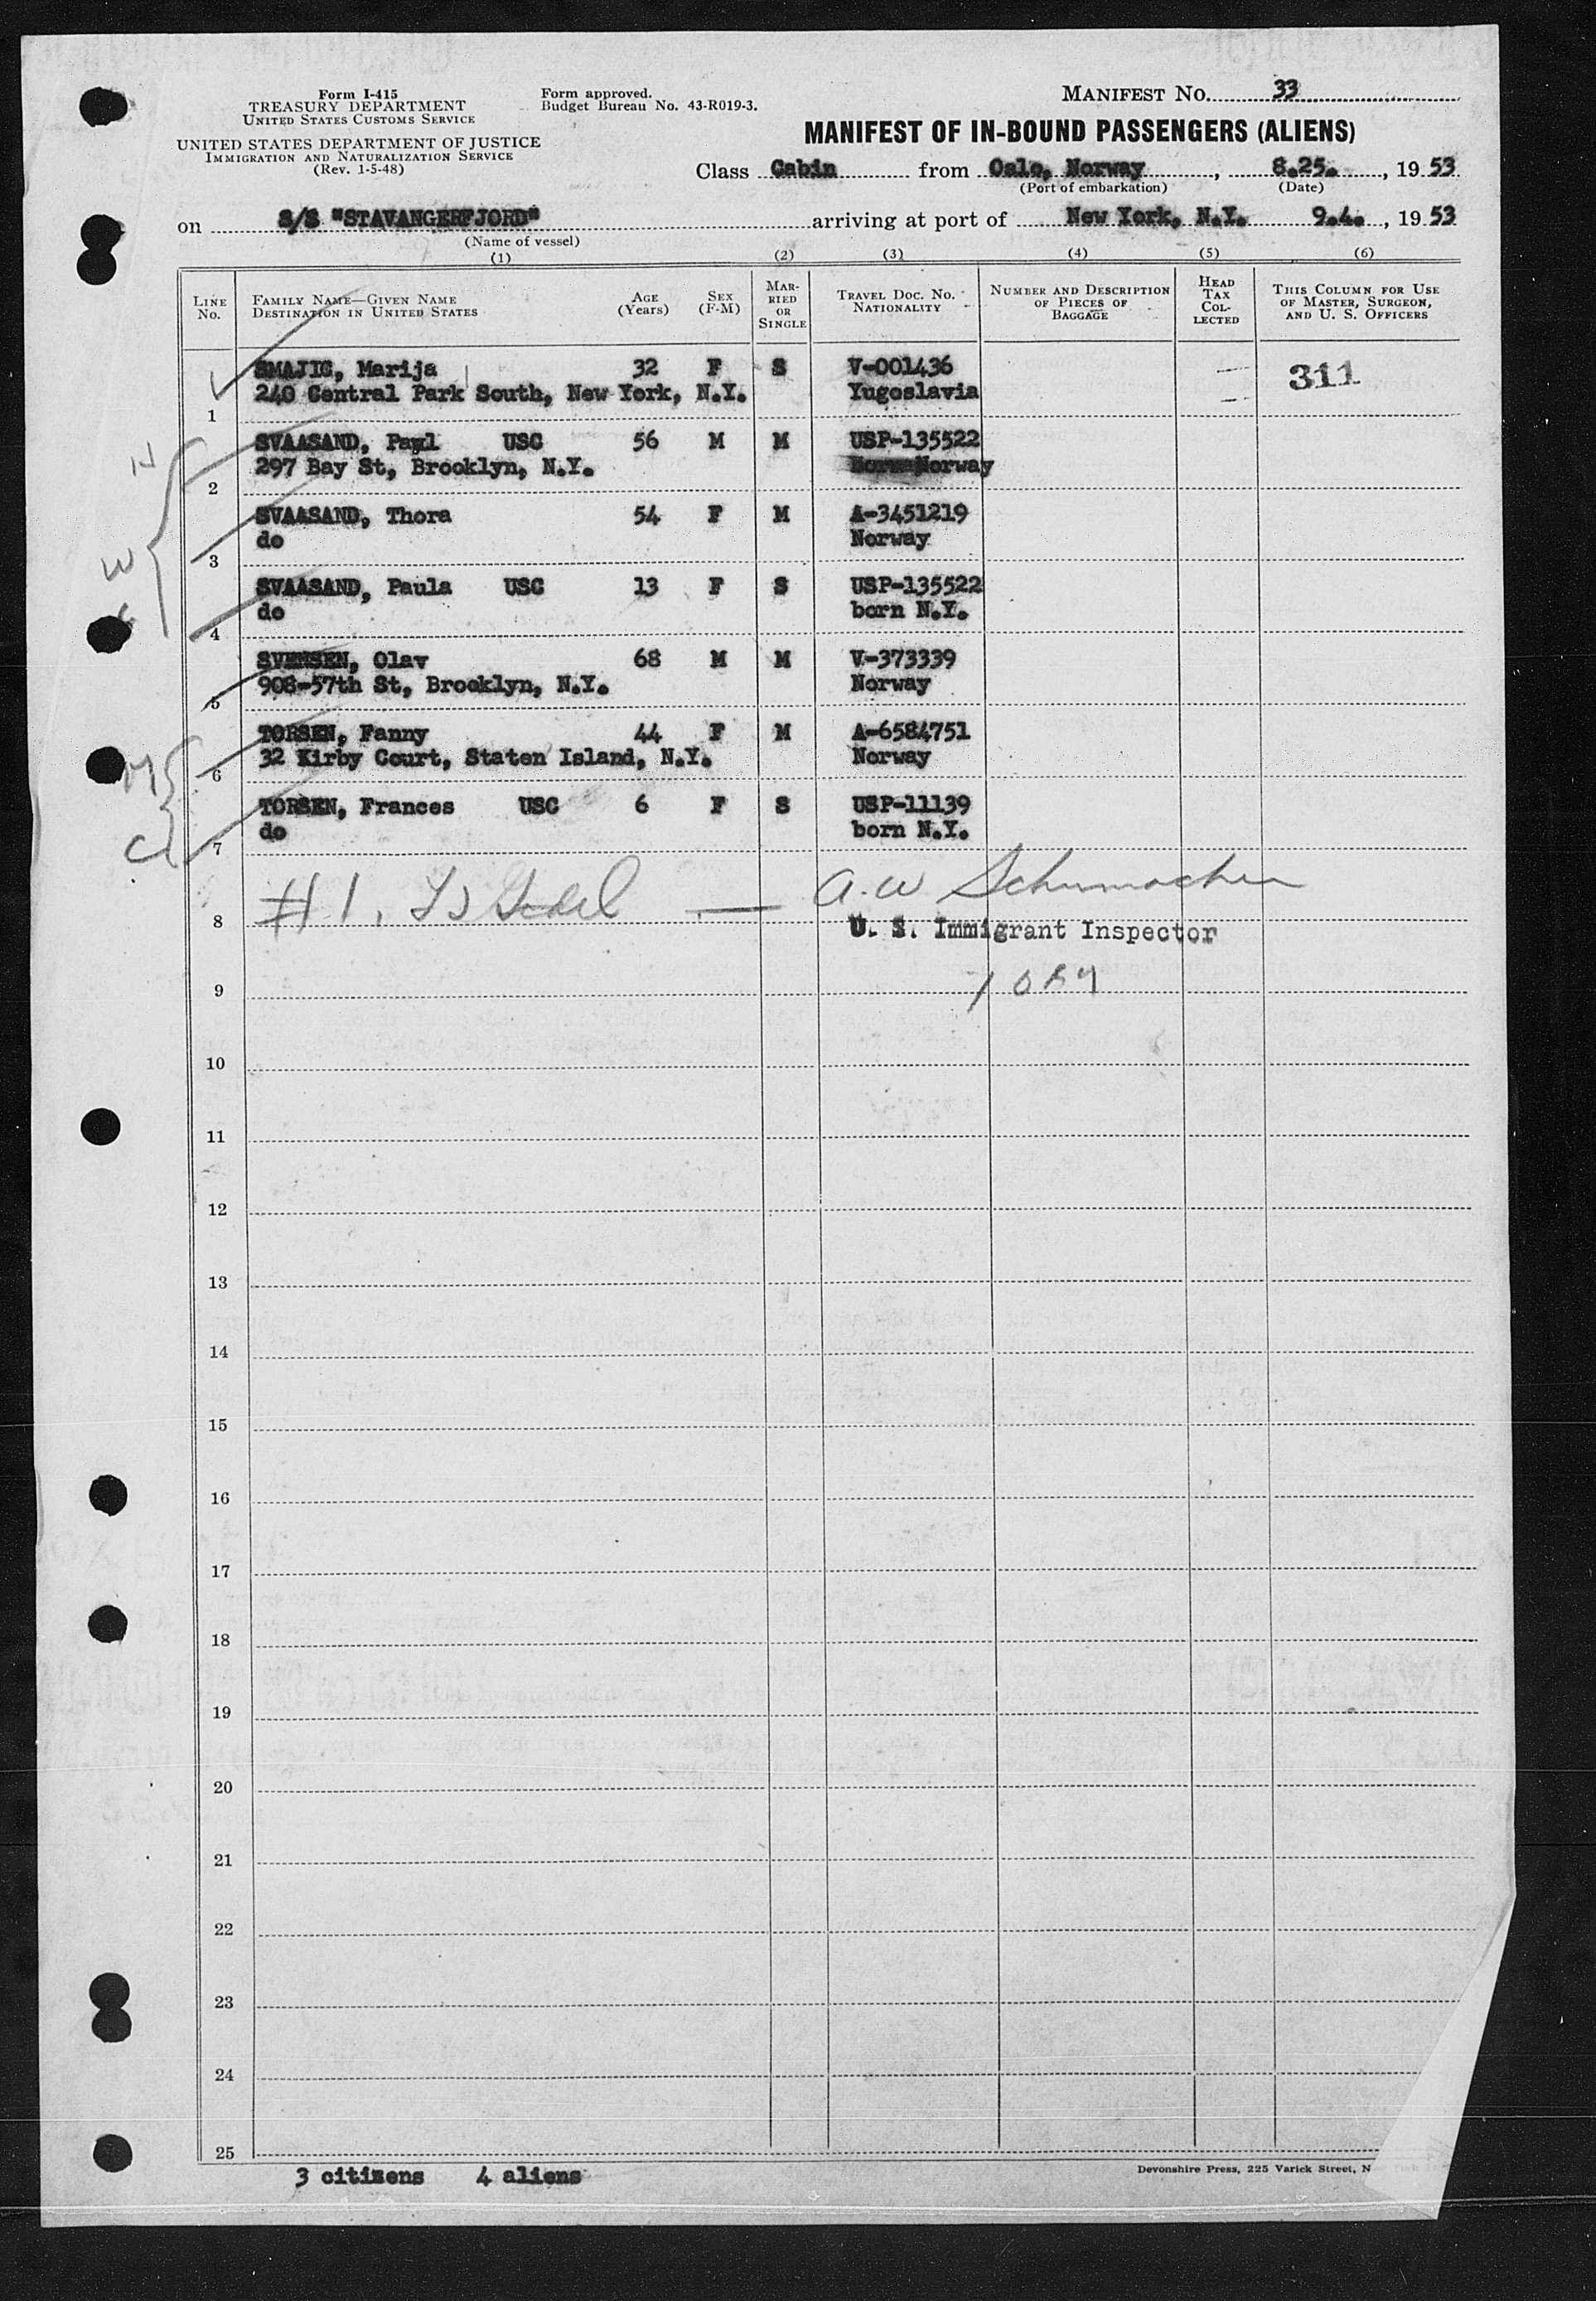 Form I-415
TREASURY DEPARTMENT
UNITED STATES CUSTOMS SERVICE
UNITED STATES DEPARTMENT OF JUSTICE
IMMIGRATION AND NATURALIZATION SERVICE
(Rev. 1-5-48)
Form approved.
Budget Bureau No. 43-R019-3.
MANIFEST No. 33
MANIFEST OF IN-BOUND PASSENGERS (ALIENS)
Class Cabin from Oslo, Norway, 8.25., 1953
(Port of embarkation) (Date)
on S/S "STAVANGERFJORD" arriving at port of New York, N.Y. 9.4., 1953
(Name of vessel)
(1) (2) (3) (4) (5) (6)
LINE No.
FAMILY NAME—GIVEN NAME
DESTINATION IN UNITED STATES
AGE (Years)
SEX (F-M)
MARRIED OR SINGLE
TRAVEL DOC. NO. NATIONALITY
NUMBER AND DESCRIPTION OF PIECES OF BAGGAGE
HEAD TAX COLLECTED
THIS COLUMN FOR USE OF MASTER, SURGEON, AND U. S. OFFICERS
SMAJIC, Marija 32 F S V-001436 311
1 240 Central Park South, New York, N.Y. Yugoslavia
SVAASAND, Paul USC 56 M M USP-135522
2 297 Bay St, Brooklyn, N.Y. Norway
SVAASAND, Thora 54 F M A-3451219
3 do Norway
SVAASAND, Paula USC 13 F S USP-135522
4 do born N.Y.
SVENSEN, Olav 68 M M V-373339
5 908-57th St, Brooklyn, N.Y. Norway
TORSEN, Fanny 44 F M A-6584751
6 32 Kirby Court, Staten Island, N.Y. Norway
TORSEN, Frances USC 6 F S USP-11139
7 do born N.Y.
8 #1. — A. W Schumacher
U. S. Immigrant Inspector
9
10
11
12
13
14
15
16
17
18
19
20
21
22
23
24
25
3 citizens 4 aliens
Devonshire Press, 225 Varick Street, N